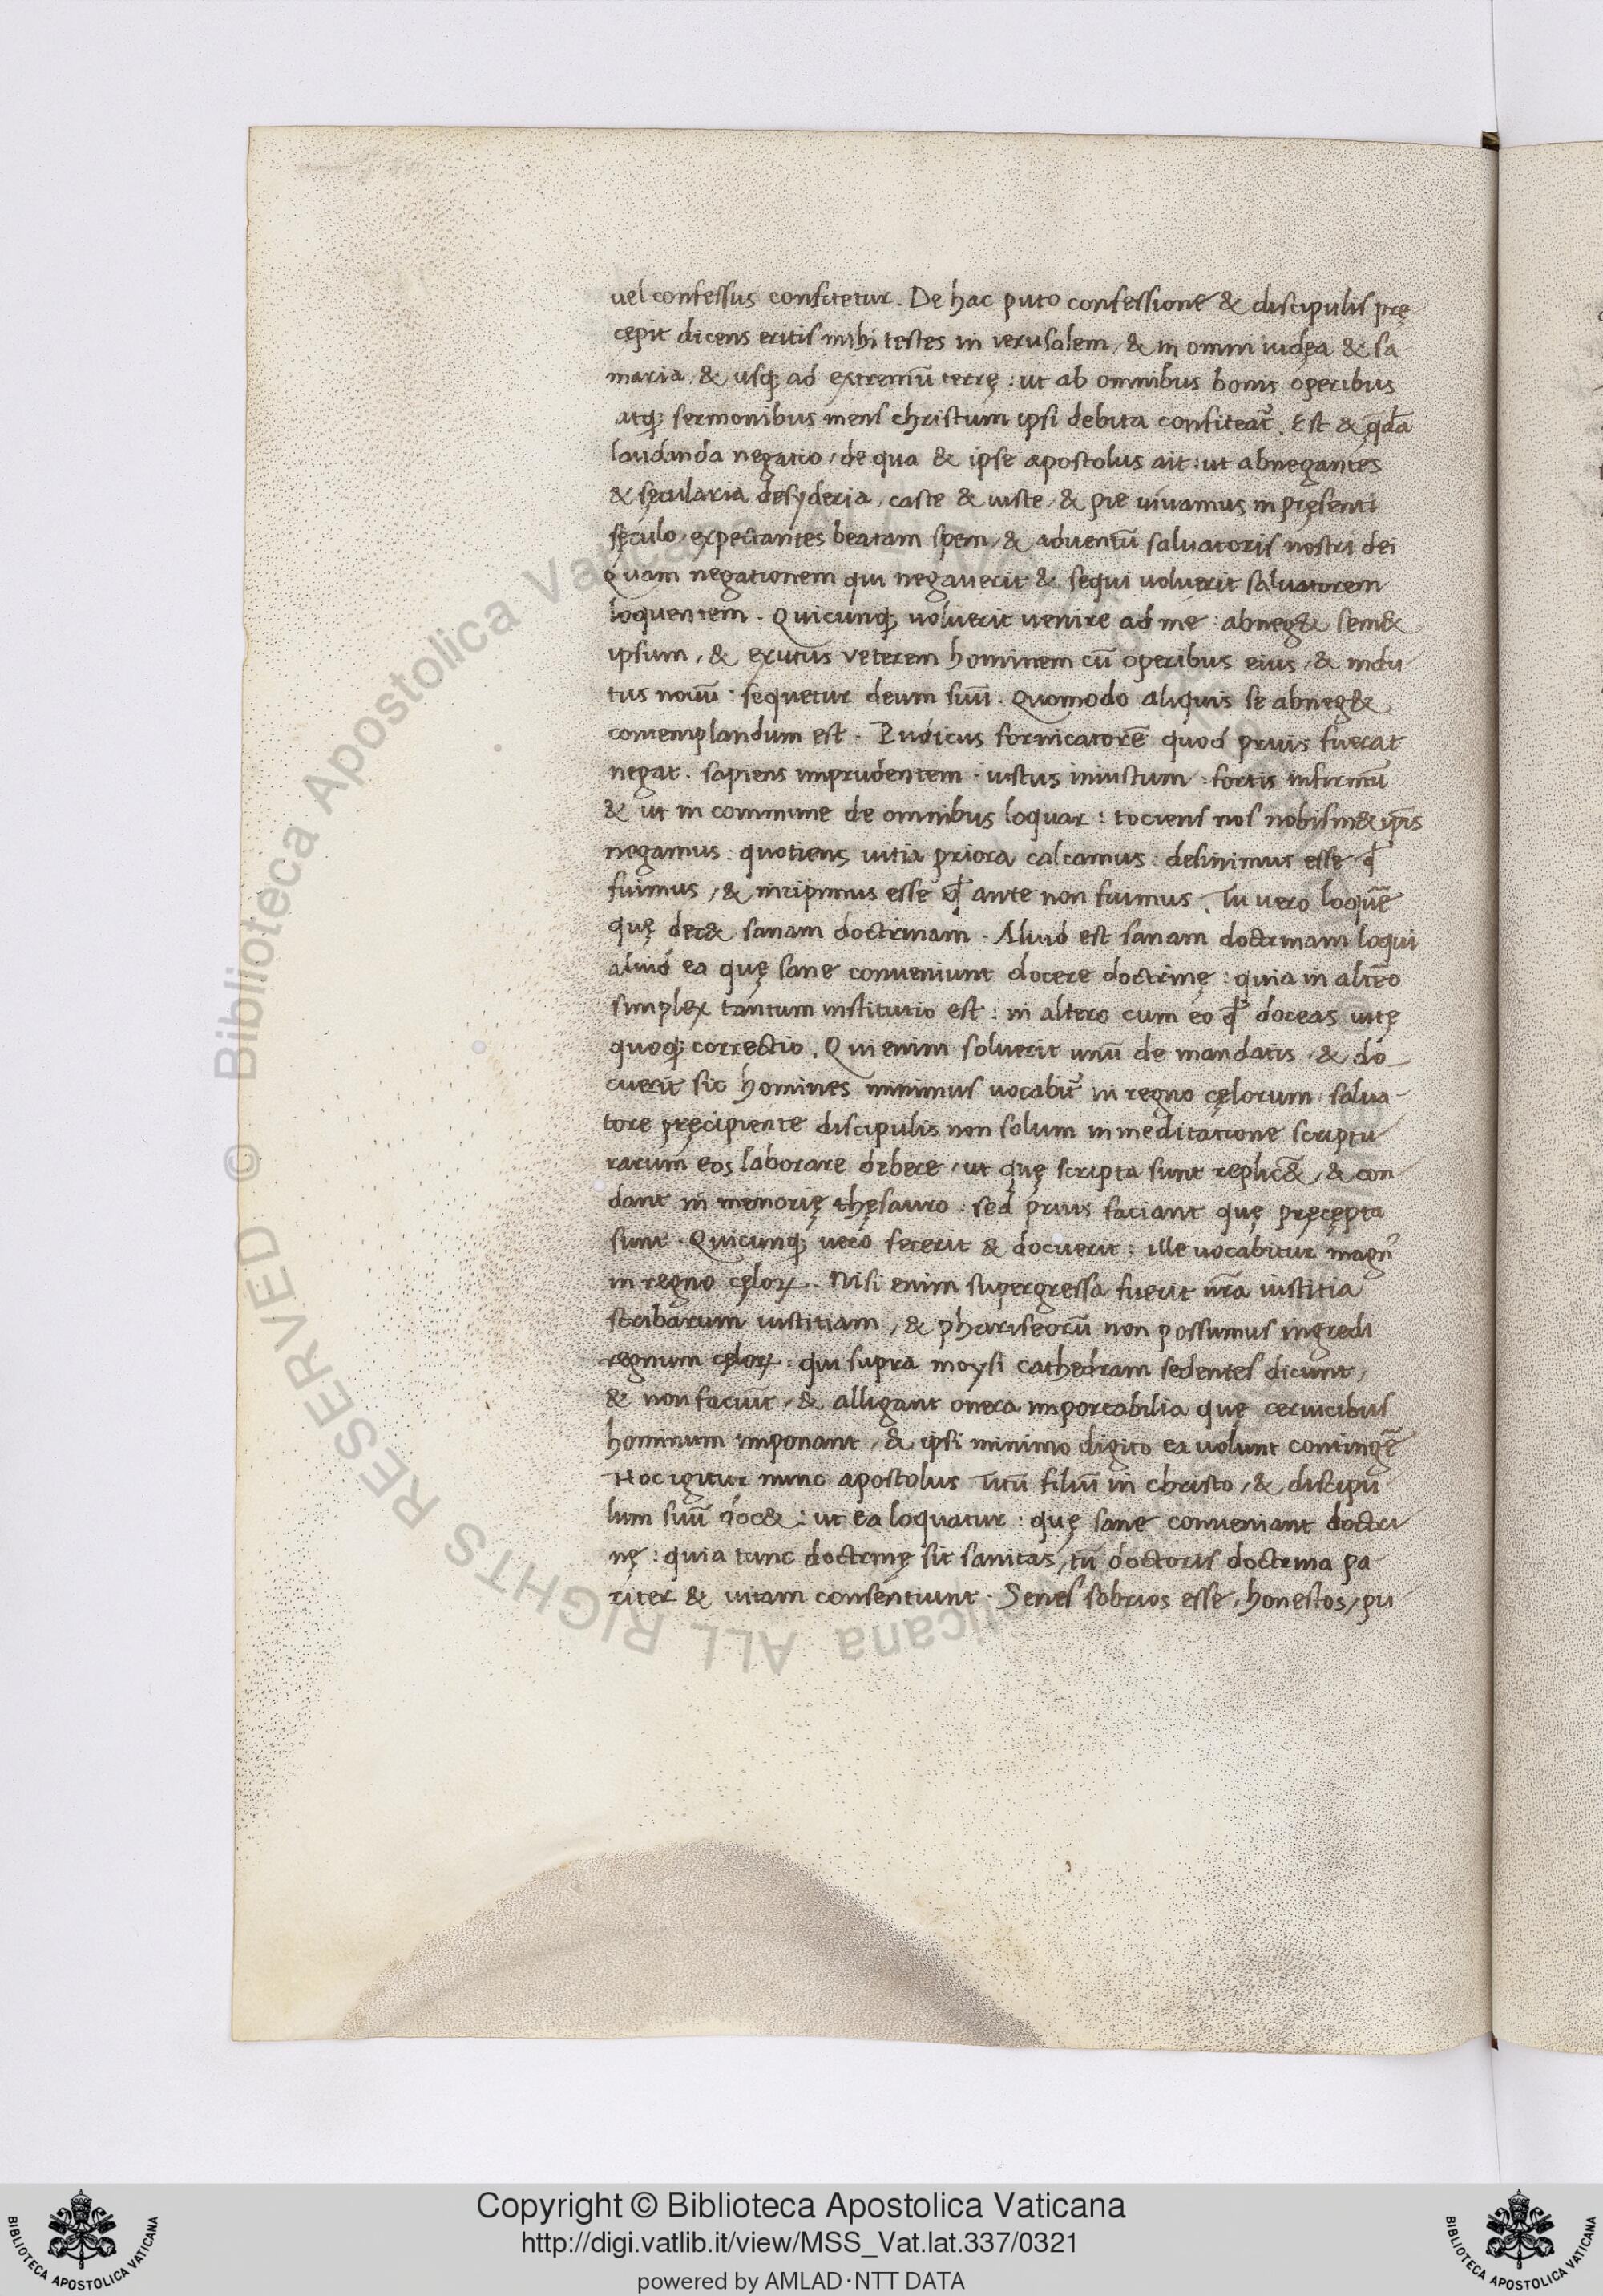 uel confessus confitetur. De hac puto confessione & discipulis prę
cepit dicens eritis mihi testes in ierusalem, & in omni iudęa & sa
maria, & usq; ad extremū terrę: ut ab omnibus bonis operibus
atq; sermonibus mens christum ipsi debita confiteat᷑. Est & q̄dā
laudanda negatio, de qua & ipse apostolus ait: ut abnegantes
& sęcularia desyderia, caste & iuste, & pie uiuamus in pręsenti
sęculo, expectantes beatam spem, & aduentū saluatoris nostri dei
Quam negationem qui negauerit & sequi uoluerit saluatorem
loquentem. Quicunq; uoluerit uenire ad me: abneg& sem&
ipsum, & exutus veterem hominem cū operibus eius, & indu
tus nouū: sequetur deum suū. Quomodo aliquis se abneg&
contemplandum est. Pudicus fornicatorē quod prius fuerat
negat. sapiens imprudentem. iustus iniustum: fortis infirmū
& ut in commune de omnibus loquar: tociens nos nobism& ip̄is
negamus: quotiens uitia priora calcamus: desinimus esse qđ
fuimus, & incipimus esse qđ ante non fuimus. Tu uero loquē
quę dec& sanam doctrinam. Aliud est sanam doctrinam loqui
aliud ea quę sane conueniunt docere doctrinę: quia in altēo
simplex tantum institutio est: in altero cum eo qđ doceas uitę
quoq; correctio. Qui enim soluerit unū de mandatis, & do
cuerit sic homines minimus uocabit᷑ in regno cęlorum, salua-
tore pręcipiente discipulis non solum in meditatione scriptu
rarum eos laborare debere, ut quę scripta sunt replic&, & con
dant in memorię thęsauro: sed prius faciant quę pręcępta
sunt. Quicunq; uero fecerit & docuerit: ille uocabitur magn᾽
in regno cęloꝝ. Nisi enim supergressa fuerit ur̄a iustitia
scribarum iustitiam, & phariseorū non possumus ingredi
regnum cęloꝝ: qui supra moysi cathedram sedentes dicunt,
& non faciūt, & alligant onera importabilia quę ceruicibus
hominum imponant, & ipsi minimo digito ea uolunt contingē
Hoc igitur nunc apostolus Titū filiū in christo, & discipu
lum suū doc&: ut ea loquatur: quę sane conueniant doctri
nę: quia tunc doctrinę sit sanitas, tū doctoris doctrina pa
riter & uitam consentiunt. Senes sobrios esse, honestos, pu
Copyright © Biblioteca Apostolica Vaticana
http://digi.vatlib.it/view/MSS_Vat.lat.337/0321
powered by AMLAD·NTT DATA